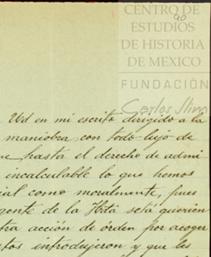 CENTRO DE
ESTUDIOS
DE HISTORIA
DE MEXICO
FUNDACIÓN
Carlos Slim
Ud en mi escrito dirigido a la
maniobra con todo lujo de
hasta el derecho de admi
incalculable lo que hemos
ial como moralmente, pues
gente de la Hda
acción de órden por acoger
introdujeron y que les